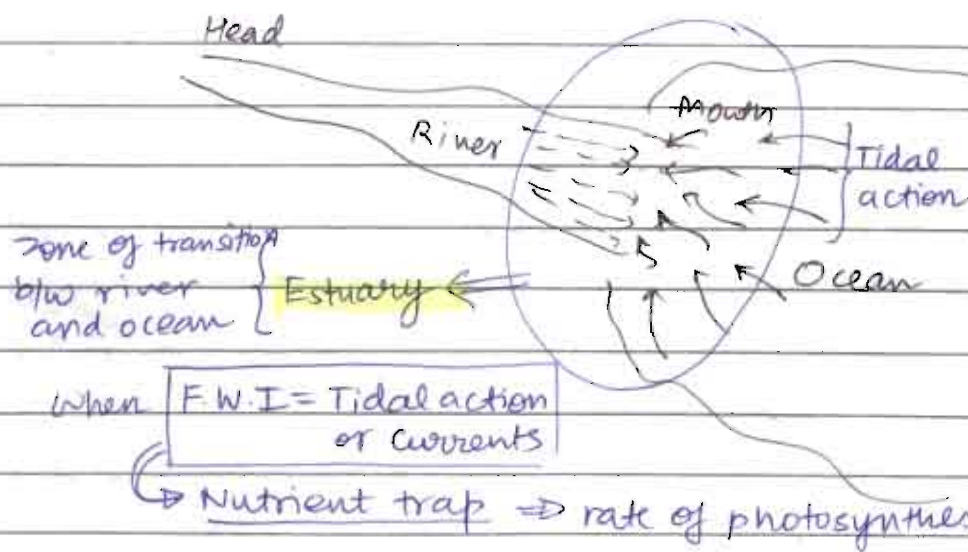 Head
Mouth
River
Tidal
action
Zone of transition
b/w river
and ocean
Estuary
Ocean
When F.W.I = Tidal action
or Currents
Nutrient trap ⇒ rate of photosynthes